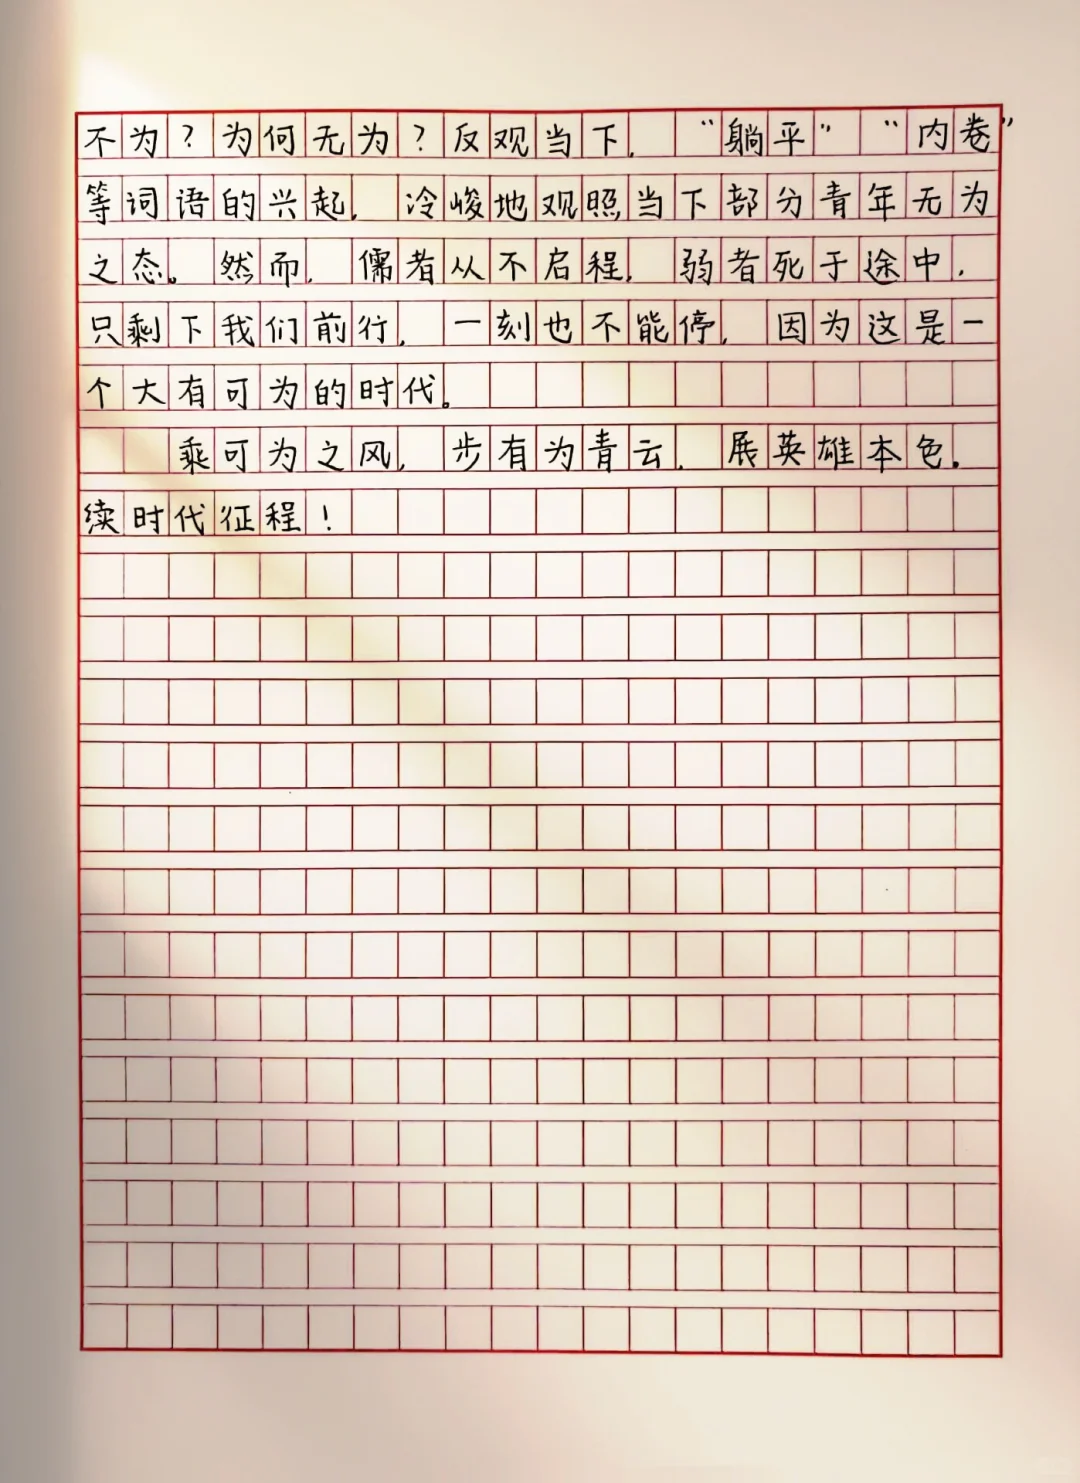 不为?为何无为?反观当下,“躺平”“内卷”
等词语的兴起,冷峻地观照当下部分青年无为
之态。然而,儒者从不启程,弱者死于途中,
只剩下我们前行,一刻也不能停,因为这是一
个大有可为的时代。
乘可为之风,步有为青云,展英雄本色。
续时代征程!